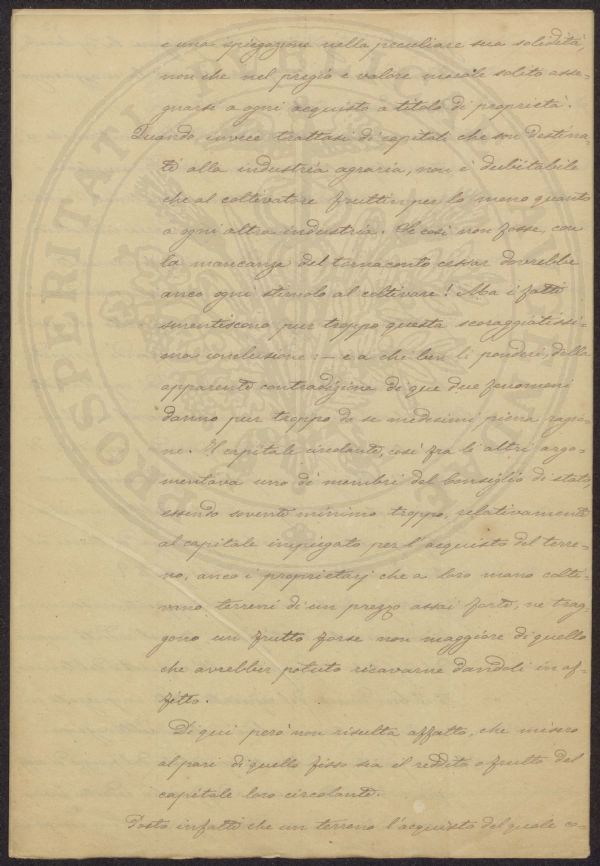 e una spiegazione nella peculiare sua solidità,
non che nel pregio e valore morale solito asse-
gnarsi a ogni acquisto a titolo di proprietà.
Quando invece trattasi di capitali che son destina-
ti alla industria agraria, non è dubitabile
che al coltivatore fruttin per lo meno quanto
a ogni altra industria. Se così non fosse, con
la mancanza del tornaconto cessar dovrebbe
anco ogni stimolo al coltivare! Ma i fatti
smentiscono pur troppo questa scoraggiatissi-
ma conclusione: — e a che ben li ponderi, della
apparente contradizione di que' due fenomeni
danno pur troppo da se medesimi piena ragio-
ne. Il capitale circolante, così fra li altri argo-
mentava uno de' membri del Consiglio di stato,
essendo sovente minimo troppo, relativamente
al capitale impiegato per l'acquisto del terre-
no, anco i proprietarj che a loro mano colti-
vano terreni di un prezzo assai forte, ne trag-
gono un frutto forse non maggiore di quello
che avrebber potuto ricavarne dandoli in af-
fitto.
Di qui però non risulta affatto, che misero
al pari di quello fisso sia il reddito o frutto del
capitale loro circolante.
Posto infatti che un terreno l'acquisto del quale co-
PROSPERITATI PUBLICAE